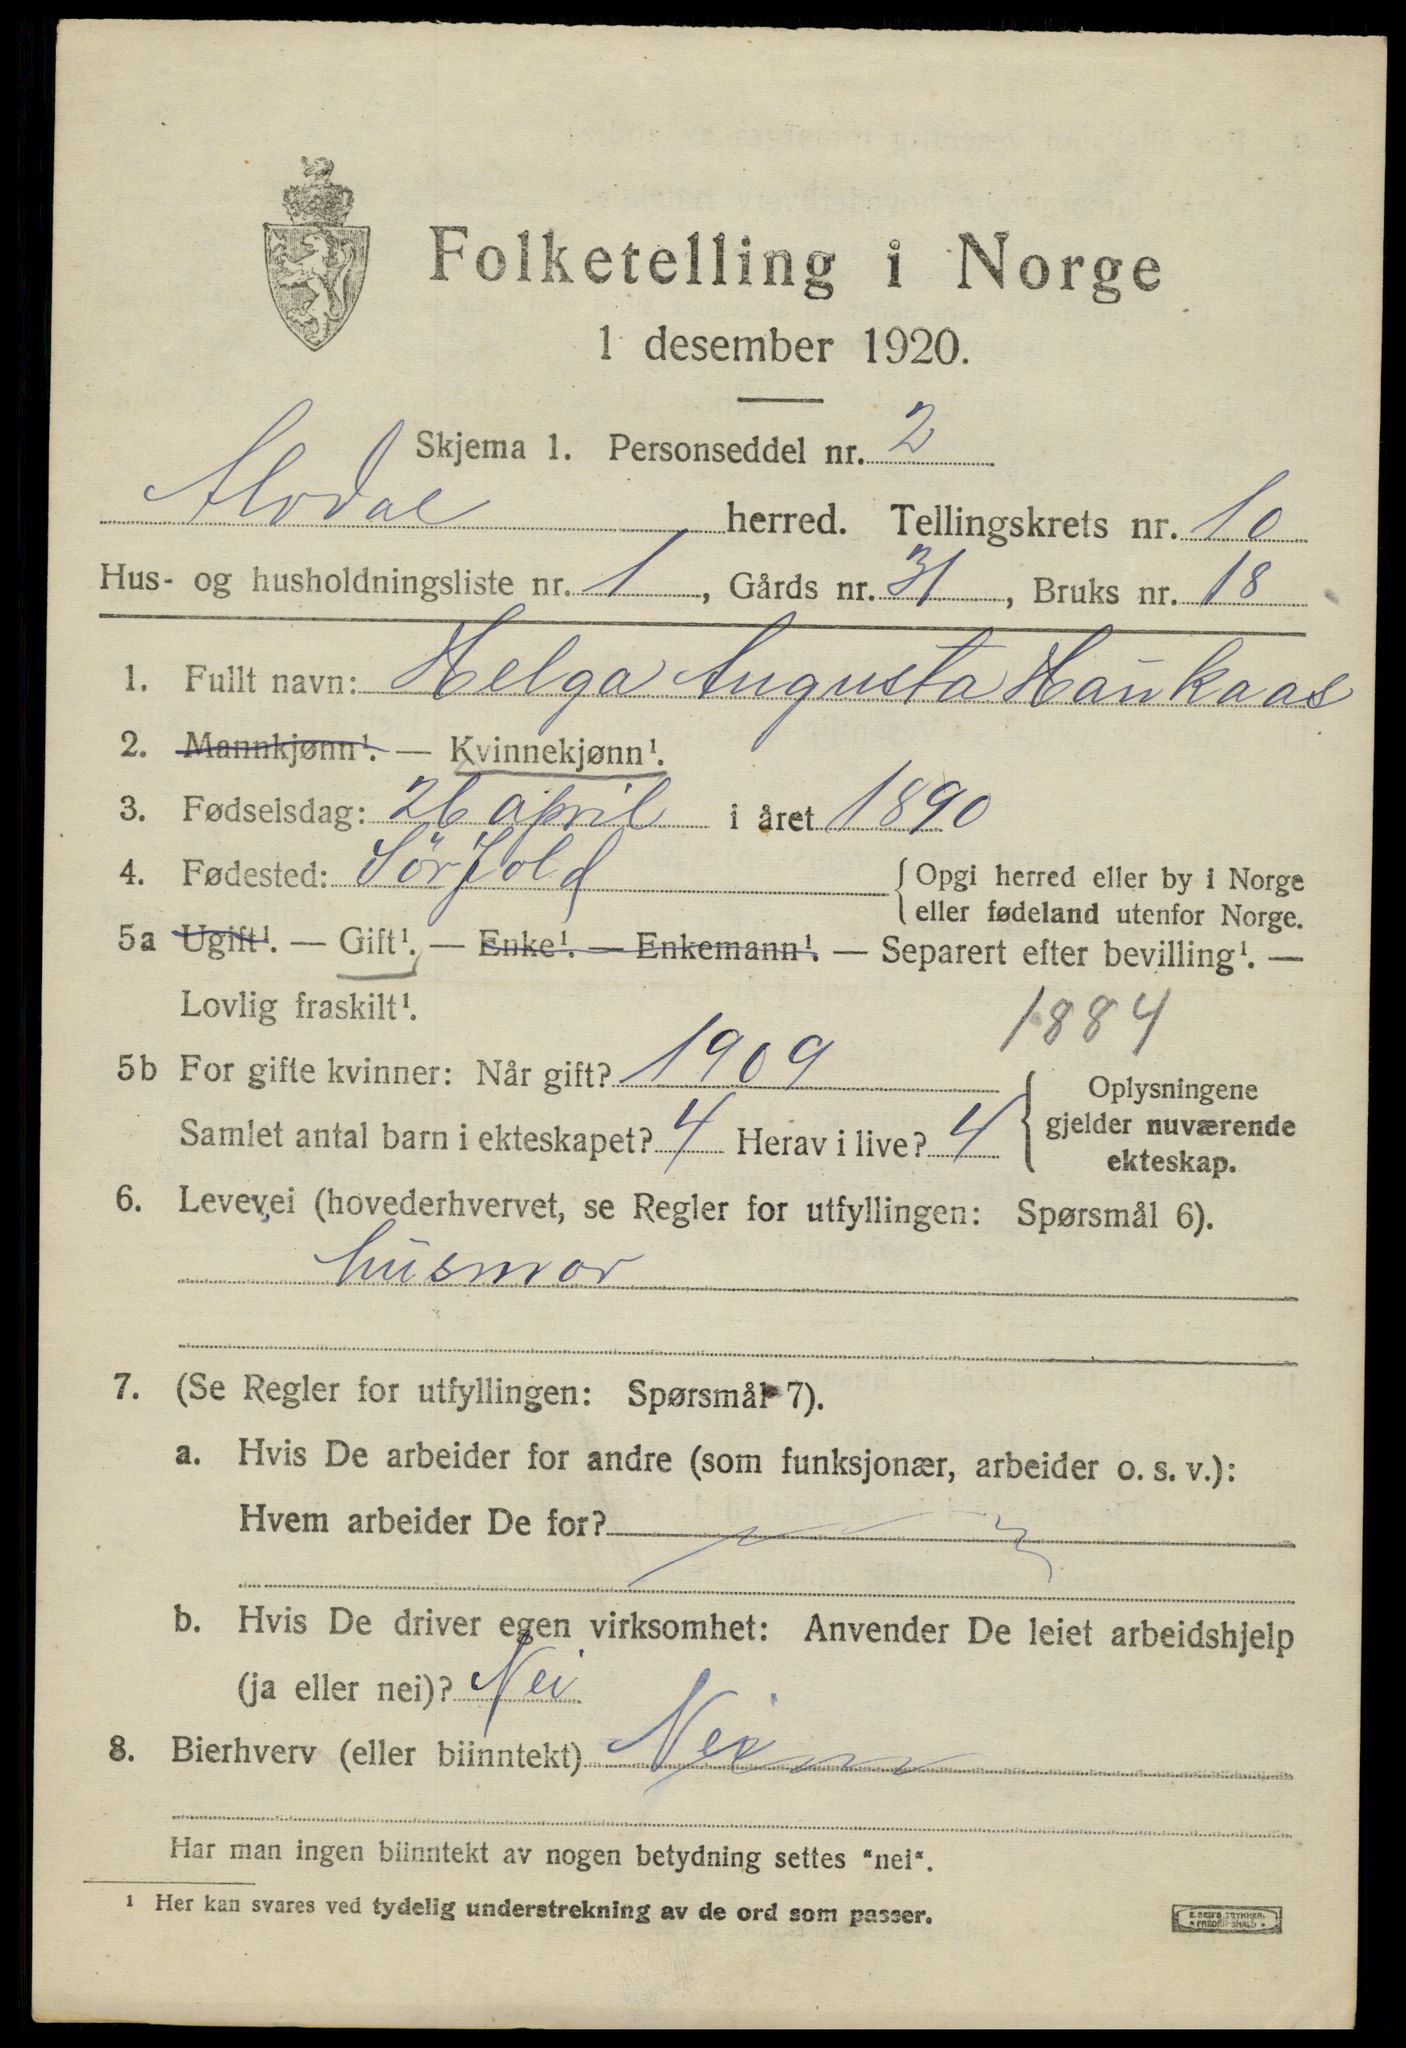 Folketelling i Norge
1 desember 1920.
Skjema 1. Personseddel nr. 2
Alvdal herred. Tellingskrets nr. 10
Hus- og husholdningsliste nr. 1, Gårds nr. 31, Bruks nr. 18
1. Fullt navn: Helga Augusta Haukaas
2. Mannkjønn¹. — Kvinnekjønn¹.
3. Fødselsdag: 26 april i året 1890
4. Fødested: Sörfold {Opgi herred eller by i Norge
eller fødeland utenfor Norge.
5a Ugift¹. — Gift¹. — Enke¹. — Enkemann¹. — Separert efter bevilling¹. —
Lovlig fraskilt¹.
1884
5b For gifte kvinner: Når gift? 1909
Samlet antal barn i ekteskapet? 4 Herav i live? 4
{Oplysningene
gjelder nuværende
ekteskap.
6. Levevei (hovederhvervet, se Regler for utfyllingen: Spørsmål 6).
husmor
7. (Se Regler for utfyllingen: Spørsmål 7).
a. Hvis De arbeider for andre (som funksjonær, arbeider o. s. v.):
Hvem arbeider De for?
b. Hvis De driver egen virksomhet: Anvender De leiet arbeidshjelp
(ja eller nei)? Nei
8. Bierhverv (eller biinntekt) Nei
Har man ingen biinntekt av nogen betydning settes "nei".
¹ Her kan svares ved tydelig understrekning av de ord som passer.